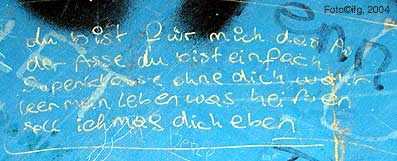 Foto©ifg, 2004
du bist für mich das As
der Asse du bist einfach
Superklasse ohne dich wahr
leer mein leben was heißen
soll ich mag dich eben